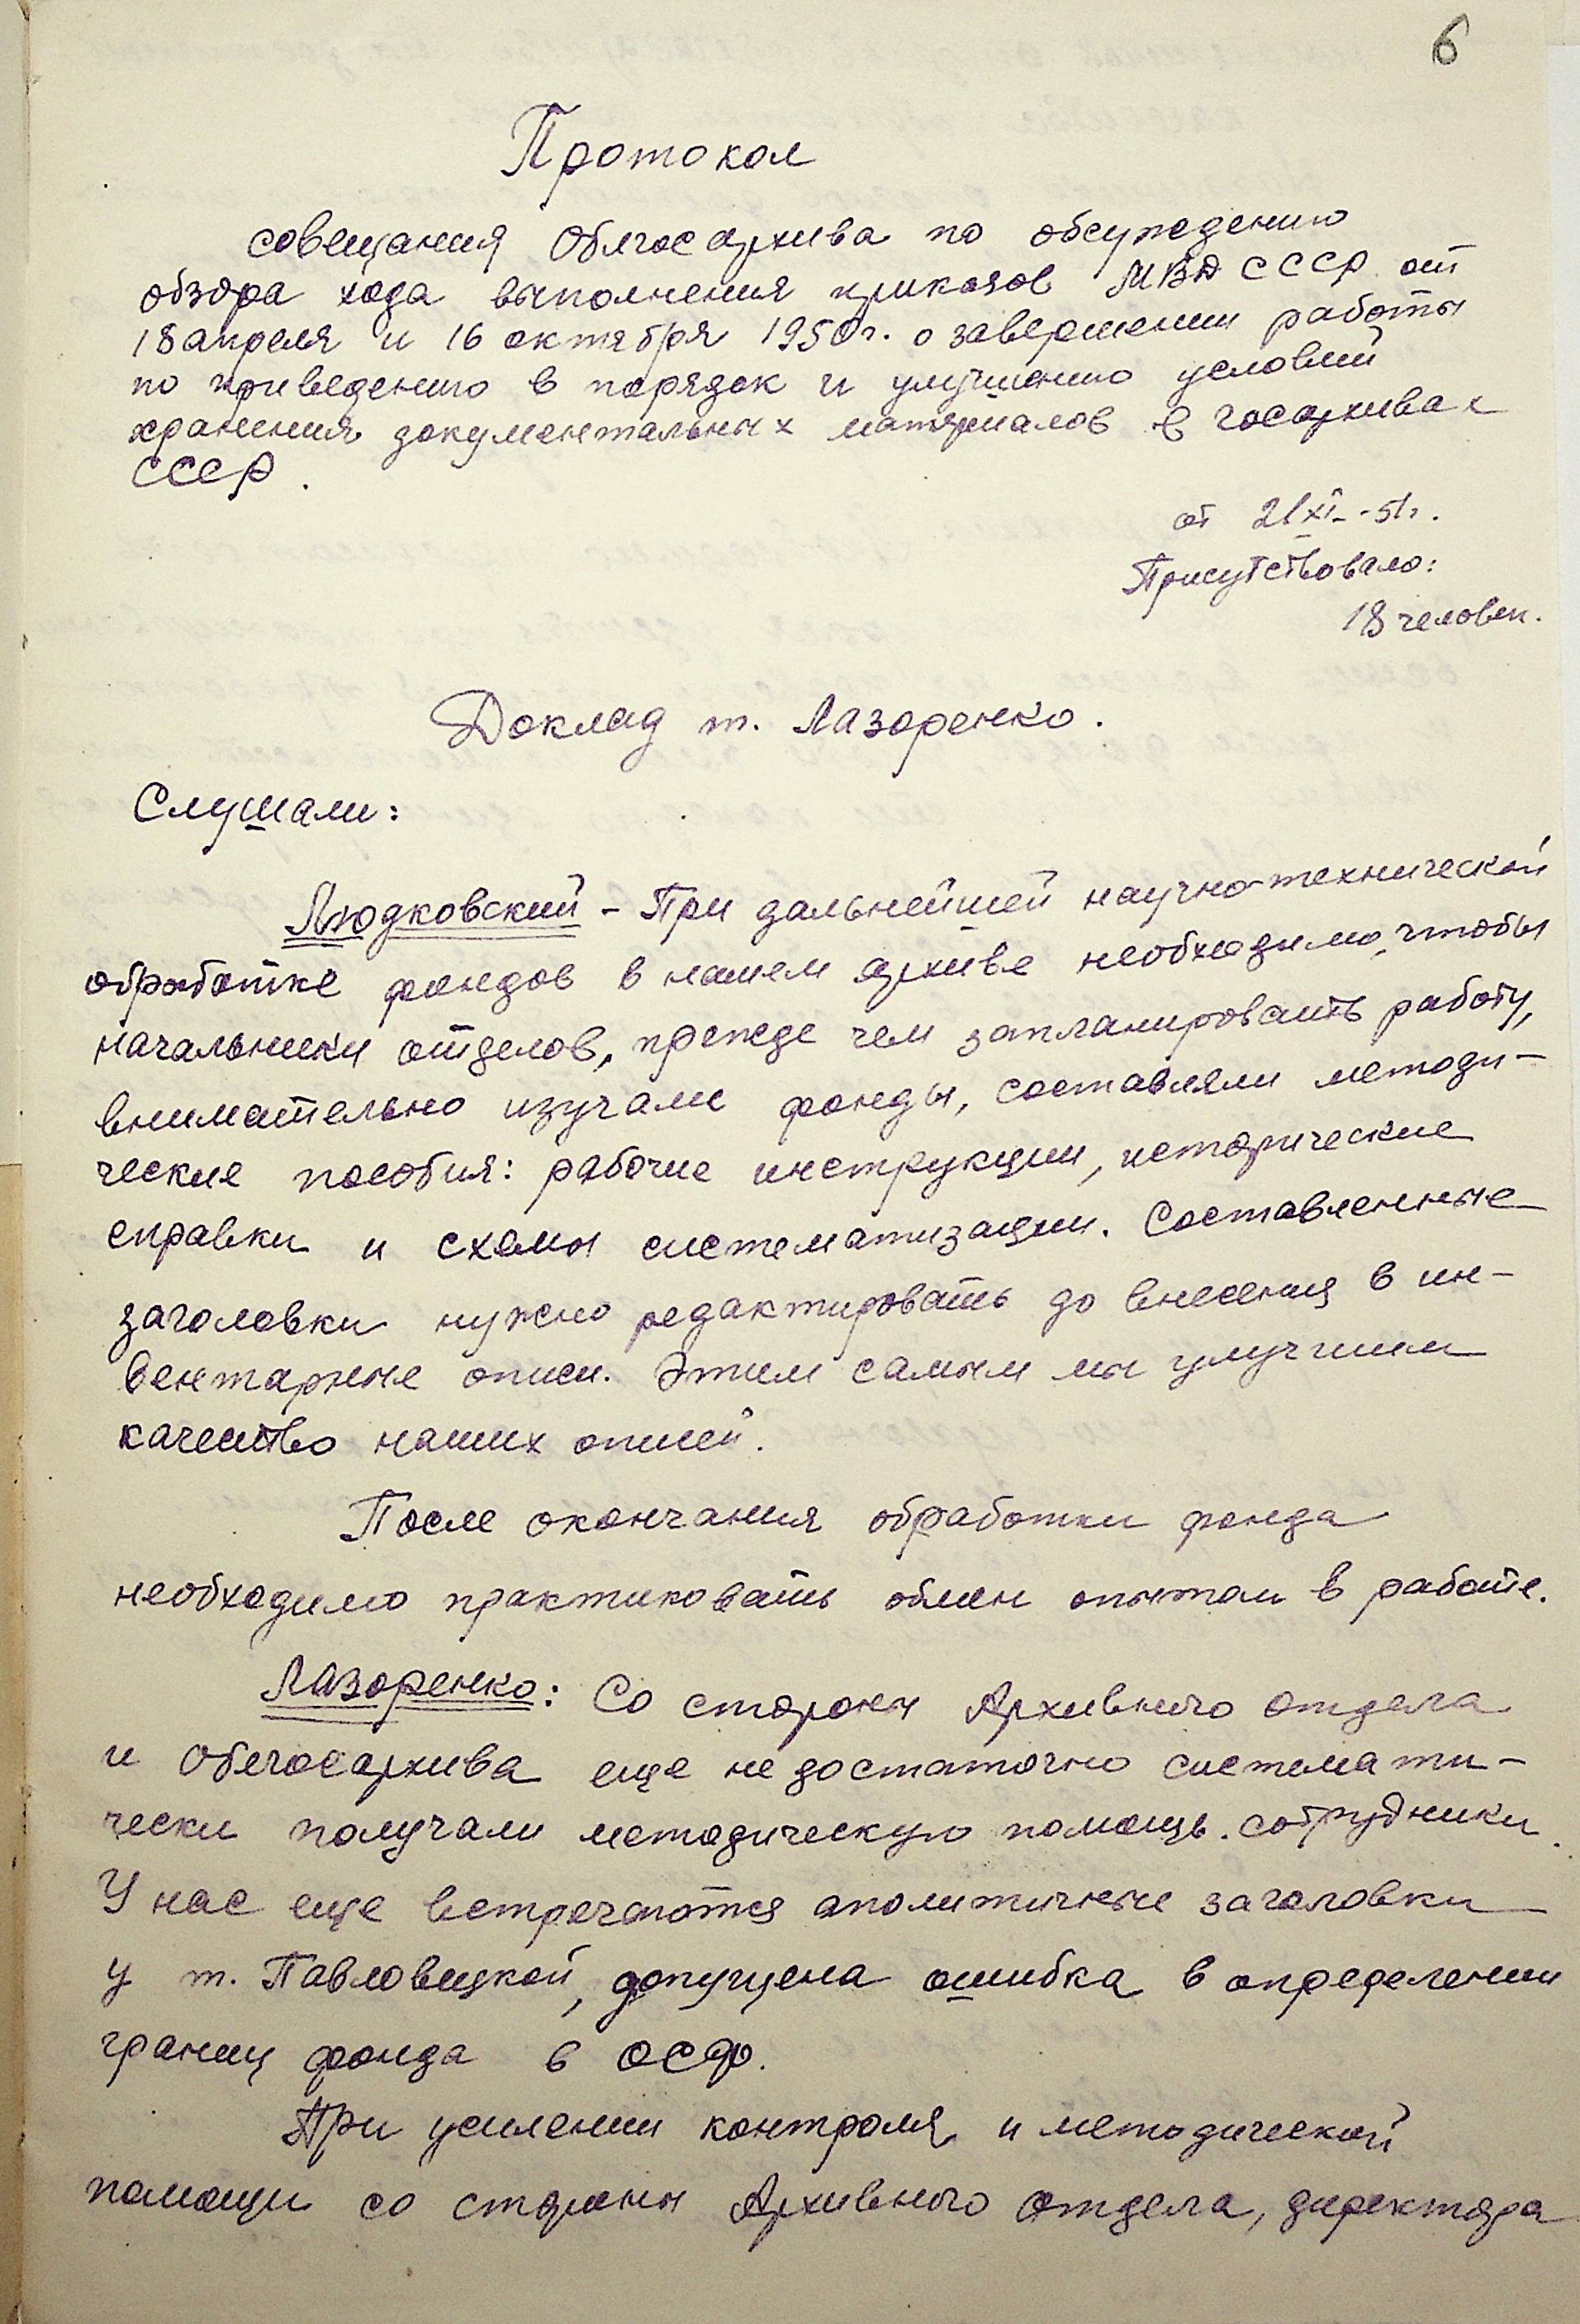 6
Протокол
совещания Облгосархива по обсуждению
обзора хода выполнения приказов МВД СССР от
18 апреля и 16 октября 1950г. о завершении работы
по приведению в порядок и улучшению условий
хранения документальных материалов в госархивах
СССР.
от 21 XI - 51г.
Присутствовало:
18 человек.
Доклад т. Лазоренко.
Слушали:
Людковский - При дальнейшей научно-технической
обработке фондов в нашем архиве необходимо, чтобы
начальники отделов, прежде чем запланировать работу,
внимательно изучали фонды, составляли методи-
ческие пособия: рабочие инструкции, исторические
справки и схемы систематизации. Составленные
заголовки нужно редактировать до внесения в ин-
вентарные описи. Этим самым мы улучшим
качество наших описей.
После окончания обработки фонда
необходимо практиковать обмен опытом в работе.
Лазоренко: Со стороны Архивного отдела
и Облгосархива еще недостаточно система ти-
чески получали методическую помощь. сотрудники.
У нас еще встречаются аполитичные заголовки
у т. Павловицкой, допущена ошибка в определении
границ фонда в ОСФ.
При усилении контроля и методической
помощи со стороны Архивного отдела, директора